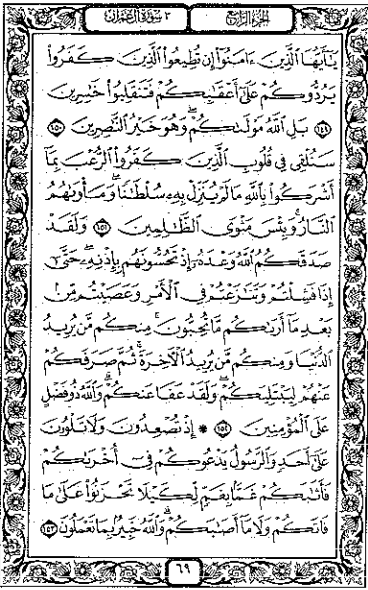 الجزء الرابع ٣ سورة آل عمران
يَـٰٓأَيُّهَا ٱلَّذِينَ ءَامَنُوٓا۟ إِن تُطِيعُوا۟ ٱلَّذِينَ كَفَرُوا۟
يَرُدُّوكُمْ عَلَىٰٓ أَعْقَـٰبِكُمْ فَتَنقَلِبُوا۟ خَـٰسِرِينَ
﴿١٤٩﴾ بَلِ ٱللَّهُ مَوْلَىٰكُمْ ۖ وَهُوَ خَيْرُ ٱلنَّـٰصِرِينَ ﴿١٥٠﴾
سَنُلْقِى فِى قُلُوبِ ٱلَّذِينَ كَفَرُوا۟ ٱلرُّعْبَ بِمَآ
أَشْرَكُوا۟ بِٱللَّهِ مَا لَمْ يُنَزِّلْ بِهِۦ سُلْطَـٰنًا ۖ وَمَأْوَىٰهُمُ
ٱلنَّارُ ۚ وَبِئْسَ مَثْوَى ٱلظَّـٰلِمِينَ ﴿١٥١﴾ وَلَقَدْ
صَدَقَكُمُ ٱللَّهُ وَعْدَهُۥٓ إِذْ تَحُسُّونَهُم بِإِذْنِهِۦ ۖ حَتَّىٰٓ
إِذَا فَشِلْتُمْ وَتَنَـٰزَعْتُمْ فِى ٱلْأَمْرِ وَعَصَيْتُم مِّنۢ
بَعْدِ مَآ أَرَىٰكُم مَّا تُحِبُّونَ ۚ مِنكُم مَّن يُرِيدُ
ٱلدُّنْيَا وَمِنكُم مَّن يُرِيدُ ٱلْـَٔاخِرَةَ ۚ ثُمَّ صَرَفَكُمْ
عَنْهُمْ لِيَبْتَلِيَكُمْ ۖ وَلَقَدْ عَفَا عَنكُمْ ۗ وَٱللَّهُ ذُو فَضْلٍ
عَلَى ٱلْمُؤْمِنِينَ ﴿١٥٢﴾ ۞ إِذْ تُصْعِدُونَ وَلَا تَلْوُۥنَ
عَلَىٰٓ أَحَدٍ وَٱلرَّسُولُ يَدْعُوكُمْ فِىٓ أُخْرَىٰكُمْ
فَأَثَـٰبَكُمْ غَمًّۢا بِغَمٍّ لِّكَيْلَا تَحْزَنُوا۟ عَلَىٰ مَا
فَاتَكُمْ وَلَا مَآ أَصَـٰبَكُمْ ۗ وَٱللَّهُ خَبِيرٌۢ بِمَا تَعْمَلُونَ ﴿١٥٣﴾
٦٩